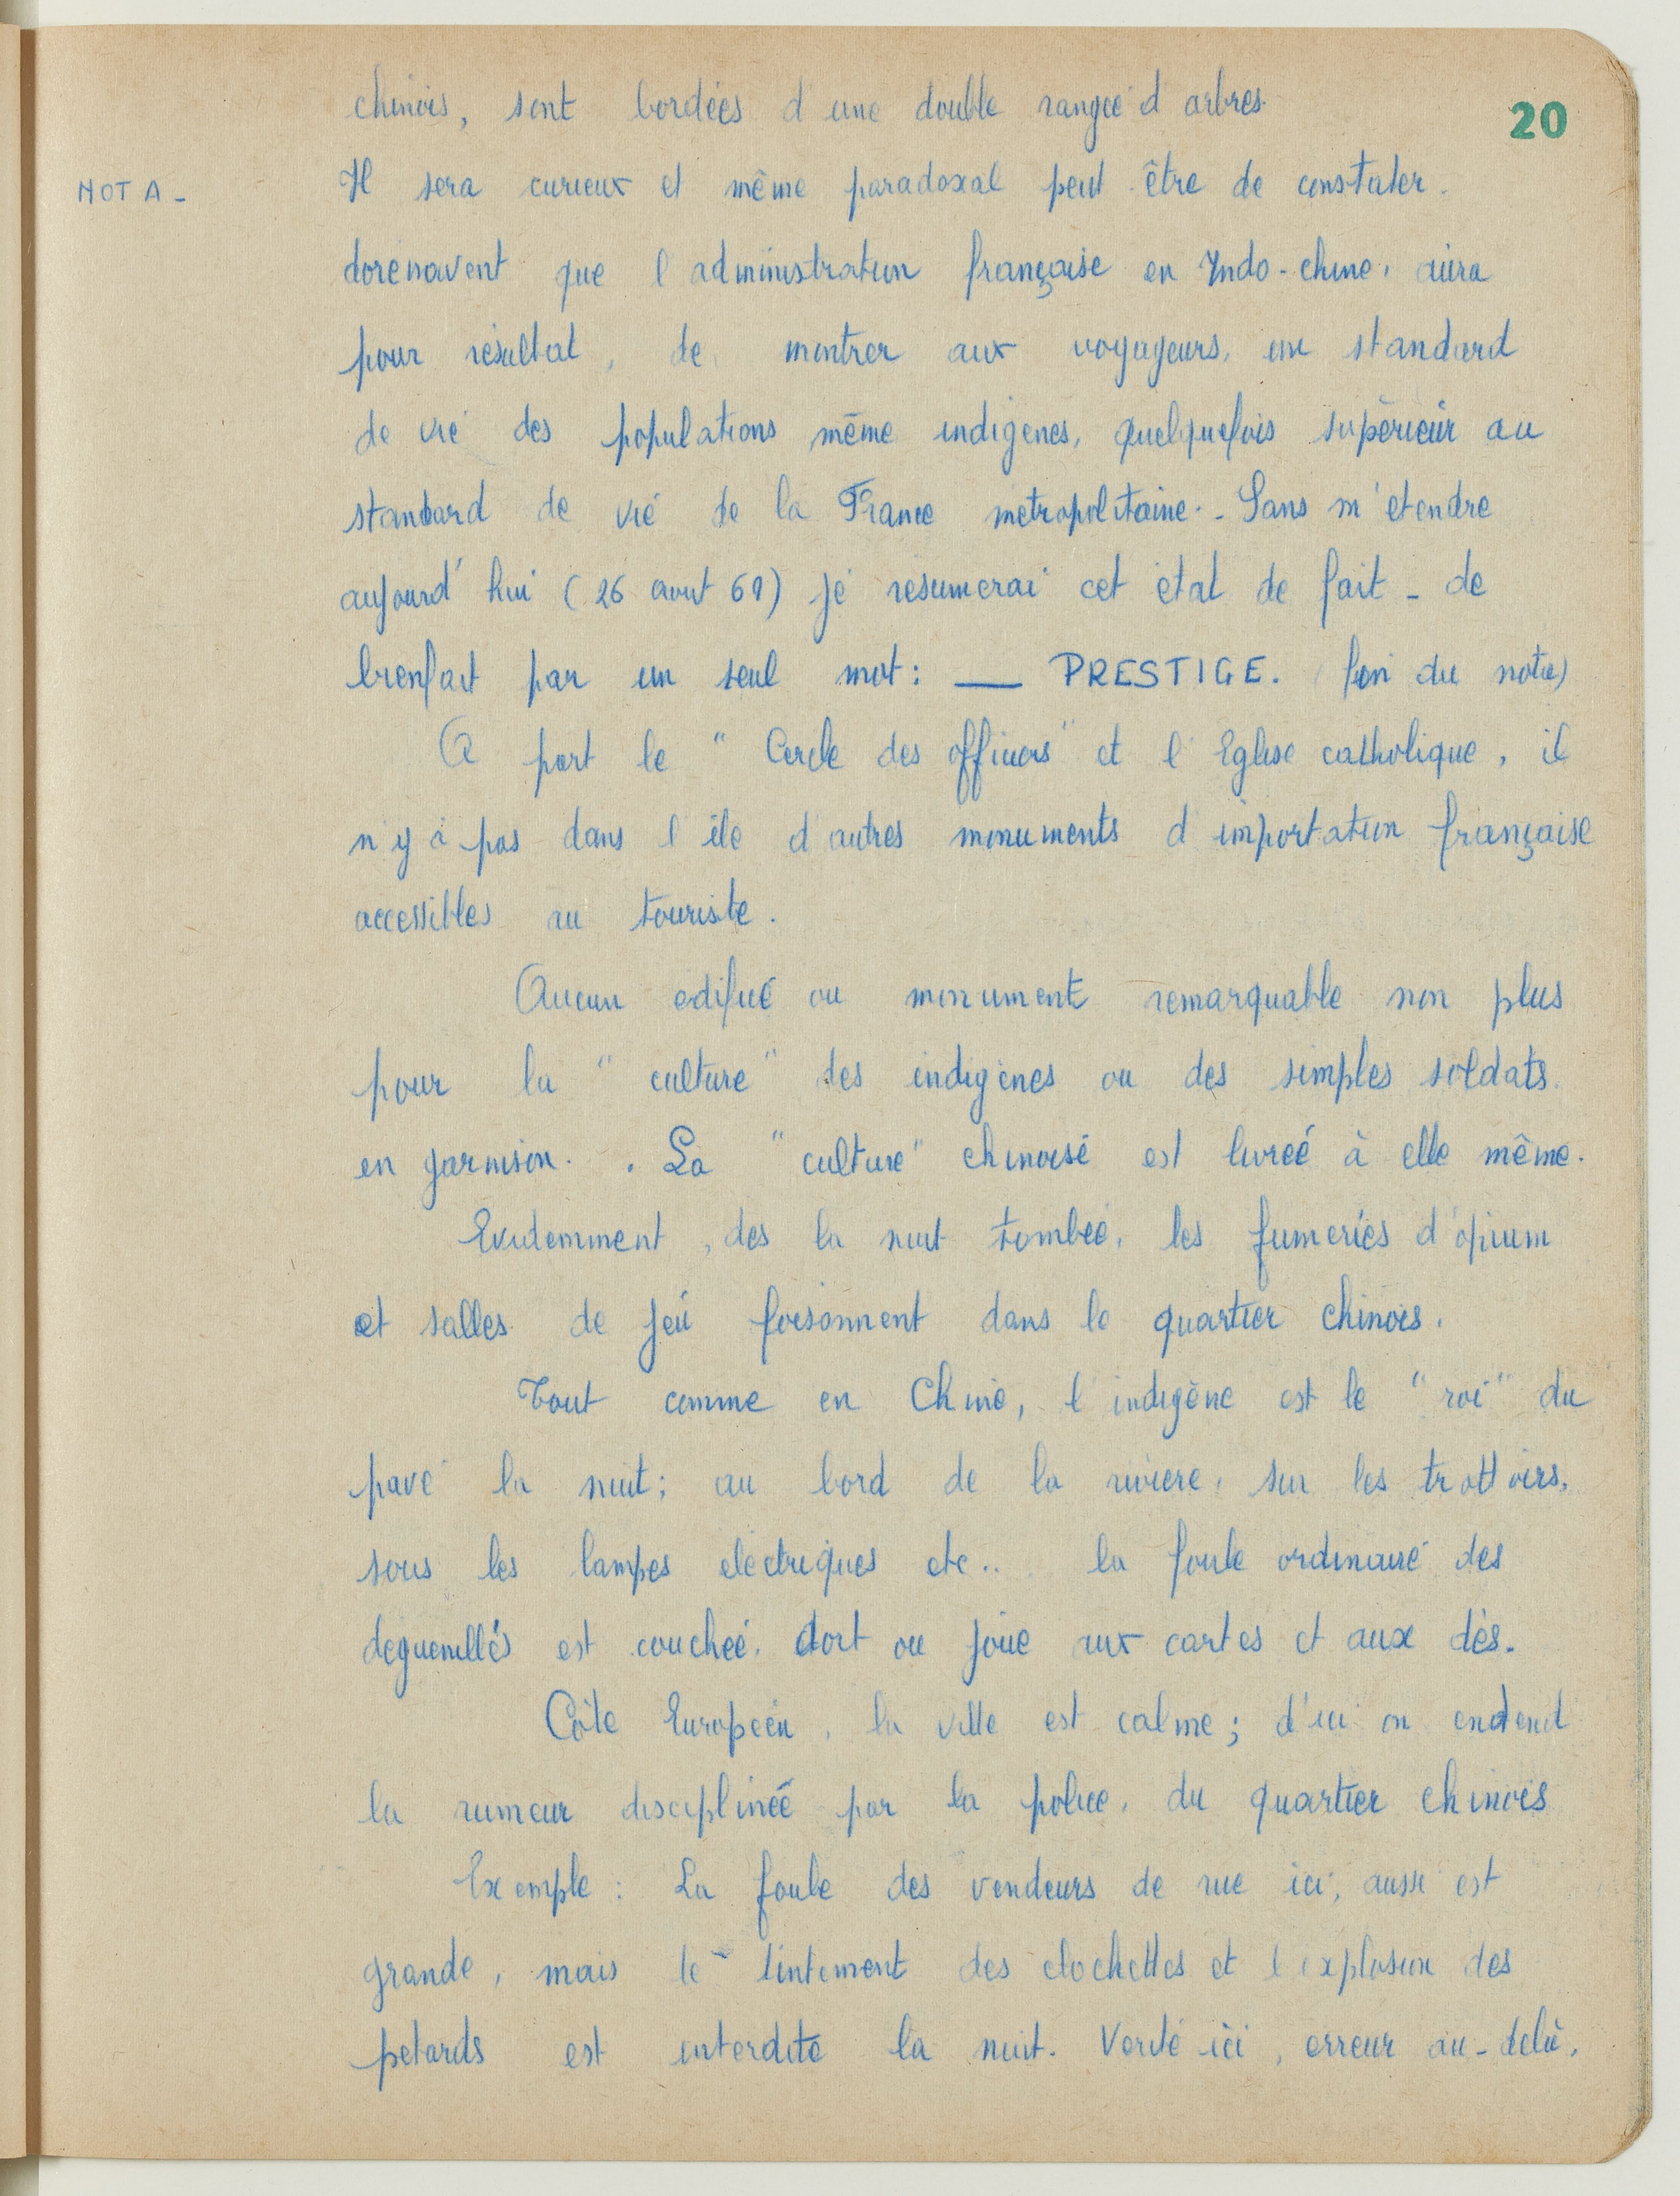 20
chinois, sont bordées d'une double rangée d'arbres.
NOTA - Il sera curieux et même paradoxal peut être de constater.
dorenavent que l'administration française en Indo-chine, aura
pour résultat, de montrer aux voyageurs, un standard
de vie des populations même indigènes, quelquefois supérieur au
standard de vie de la France metropolitaine. - Sans m'etendre
aujourd'hui (26 aout 61) je resumerai cet état de fait - de
bienfait par un seul mot : — PRESTIGE. (fin du nota)
A part le "Cercle des officiers" et l'Eglise catholique, il
n'y a pas dans l'île d'autres monuments d'importation française
accessibles au touriste.
Aucun edifice ou monument remarquable non plus
pour la "culture" des indigènes ou des simples soldats.
en garnison. La "culture" chinoise est livreé à elle même.
Evidemment, des la nuit tombeé, les fumeries d'opium
et salles de jeu foisonnent dans le quartier chinois.
Tout comme en Chine, l'indigène est le "roi" du
pavé la nuit ; au bord de la riviere, sur les trottoirs,
sous les lampes electriques etc.. la foule ordinaire des
deguenillés est coucheé, dort ou joue aux cartes et aux dés.
Côte Européen, la ville est calme ; d'ici on entend
la rumeur disciplineé par la police, du quartier chinois
Exemple : La foule des vendeurs de rue ici, aussi est
grande, mais le tintement des clochettes et l'explosion des
petards est interdite la nuit. Verité ici, erreur au-delà.